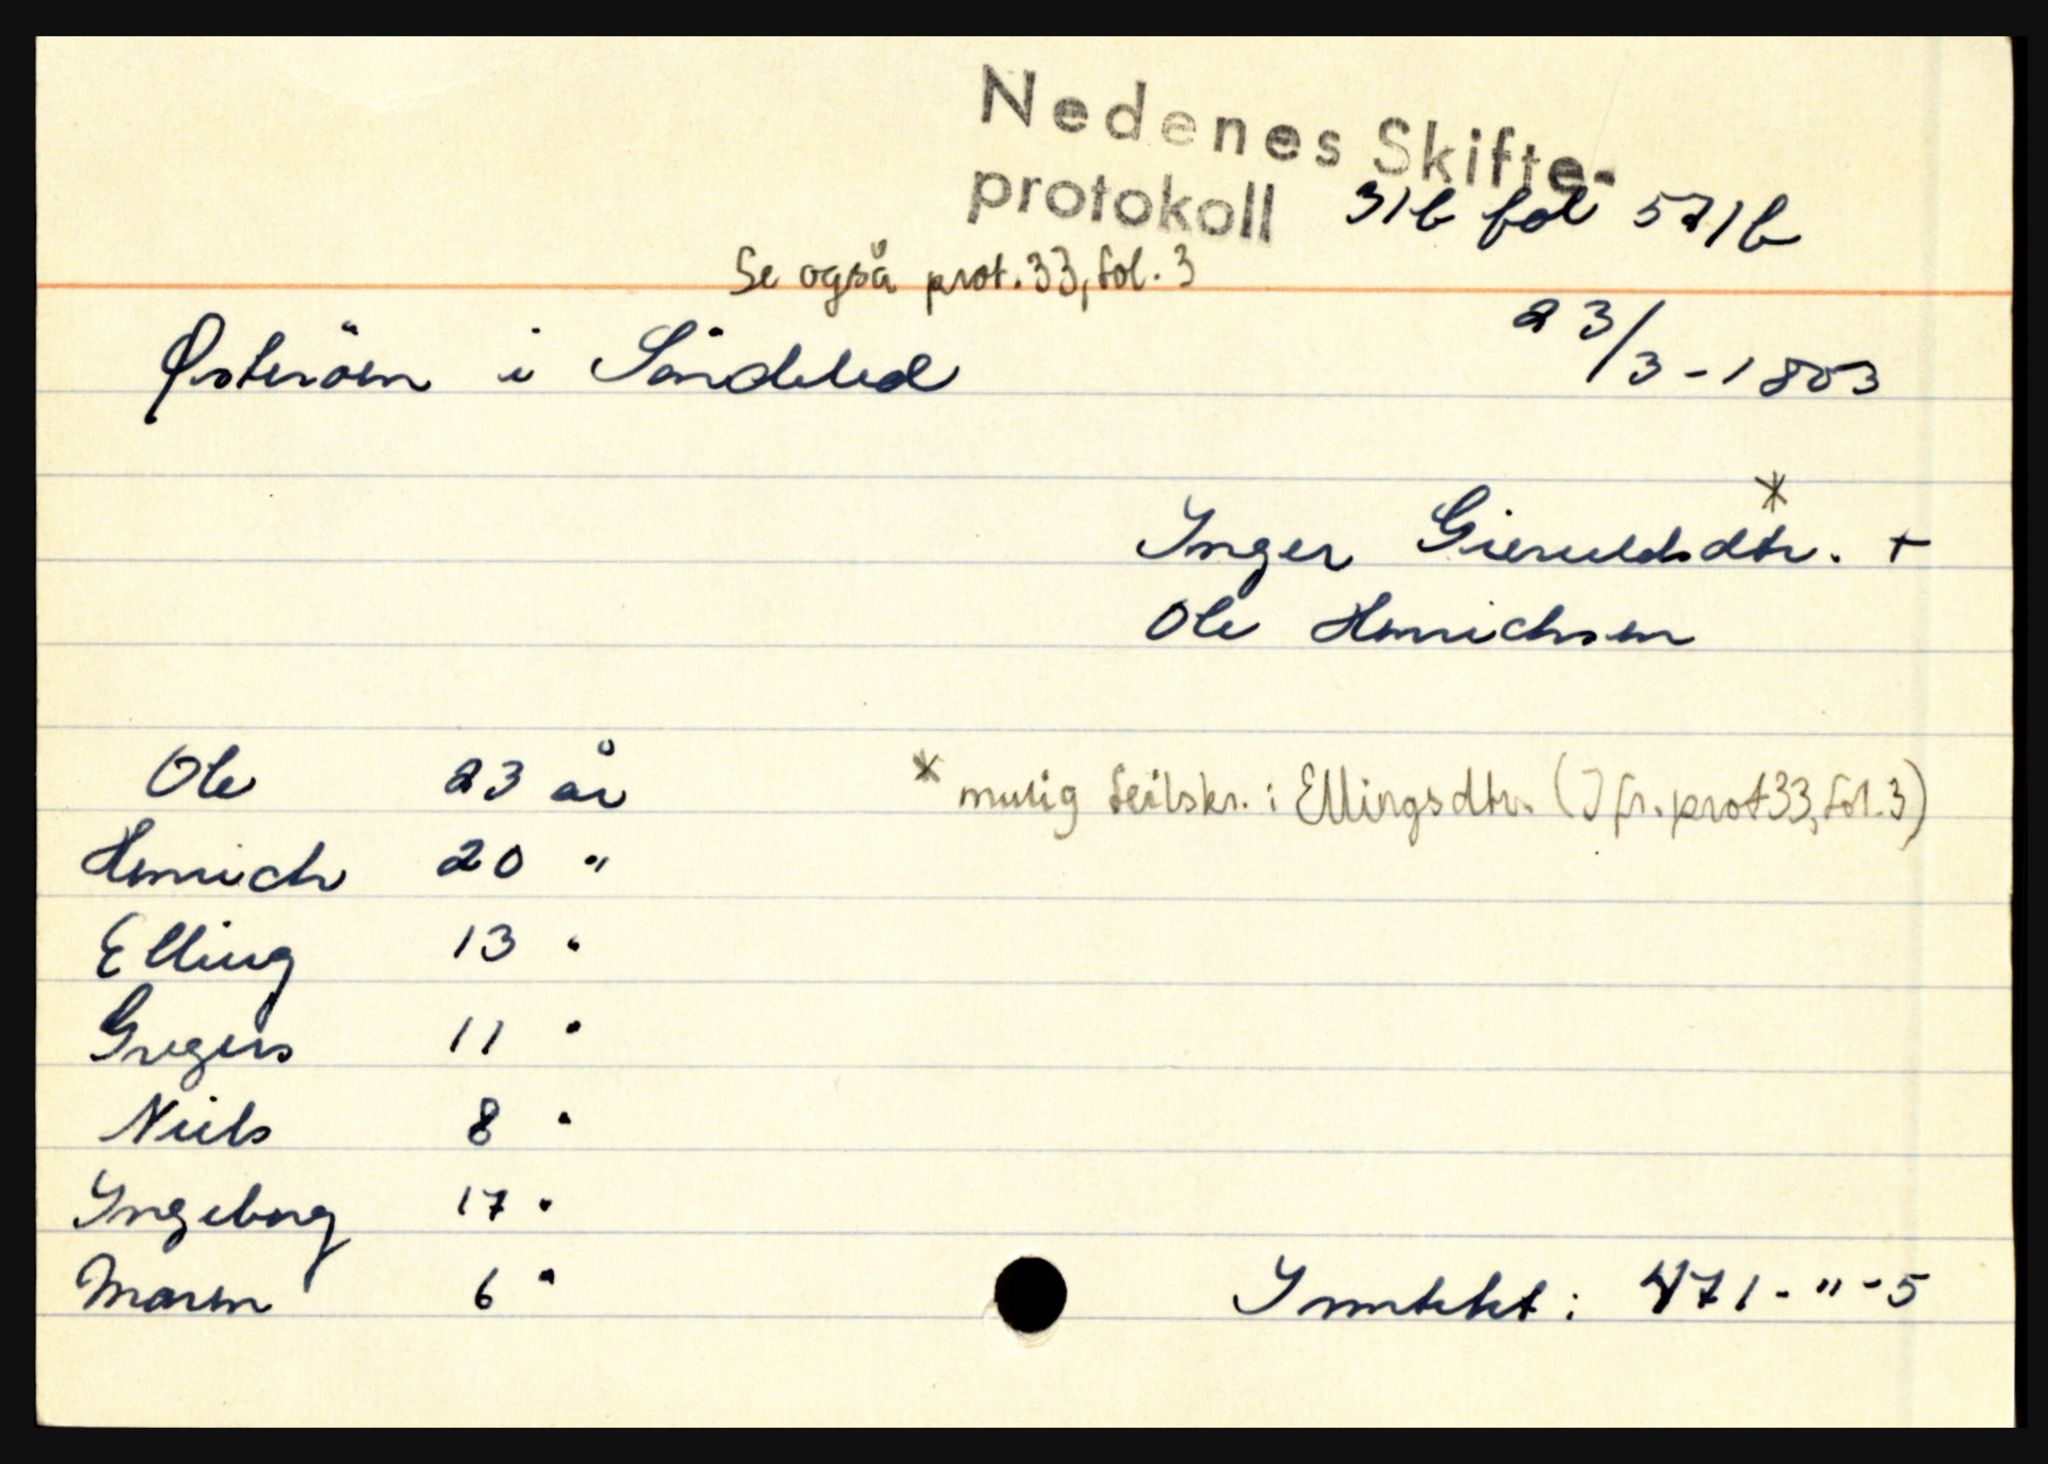 Nedenes Skifte-
protokoll 31b fol 571b
Se også prot. 33, fol. 3
Østeröen i Söndeled 23/3-1803
Inger Gieruldsdtr.* +
Ole Henrichsen
Ole 23 år * mulig feilskr. i Ellingsdtr. (Jfr. prot 33, fol. 3)
Henrich 20 "
Elling 13 "
Gregers 11 "
Niels 8 "
Ingeborg 17 "
Maren 6 "
Inntekt: 471-"-5